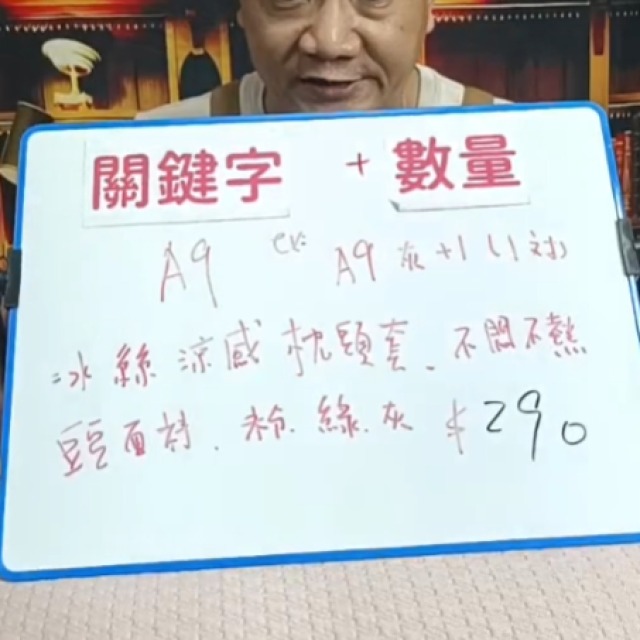 關鍵字 + 數量
A9 ex: A9灰+1(1对)
冰絲涼感枕頭套、不悶不熱
豆豆面料、粉.綠.灰 $290